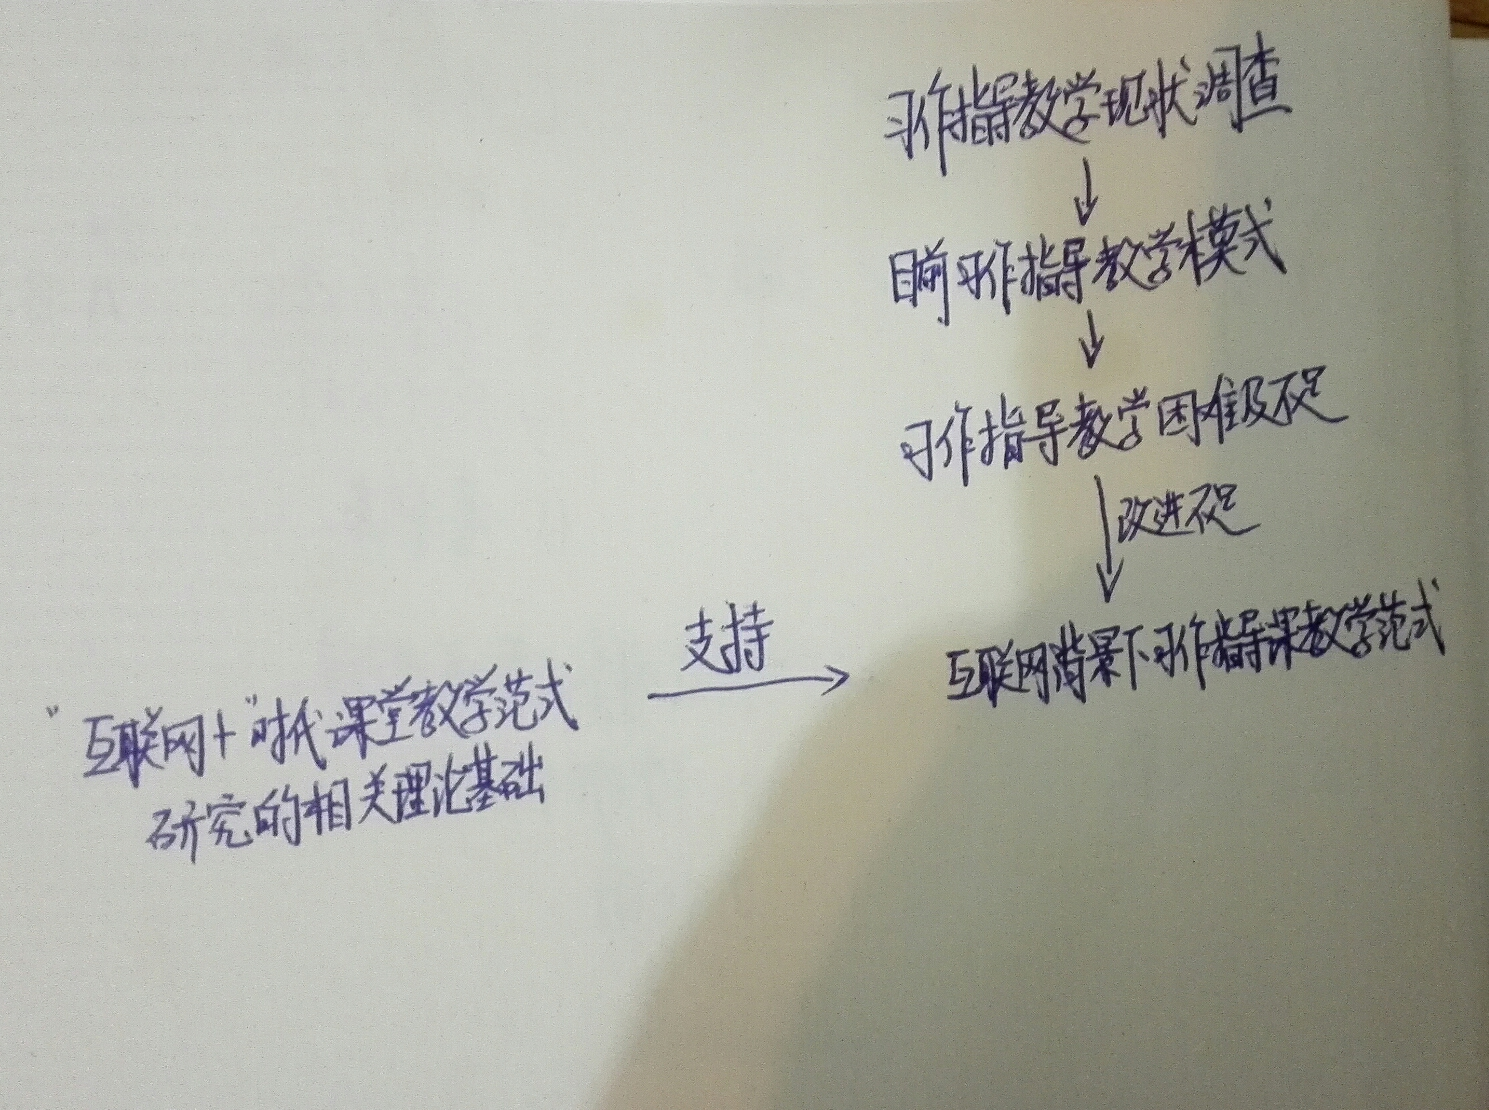 习作指导教学现状调查
目前习作指导教学模式
习作指导教学困难及不足
改进不足
支持
互联网背景下习作指导课教学范式
"互联网+"时代课堂教学范式
研究的相关理论基础